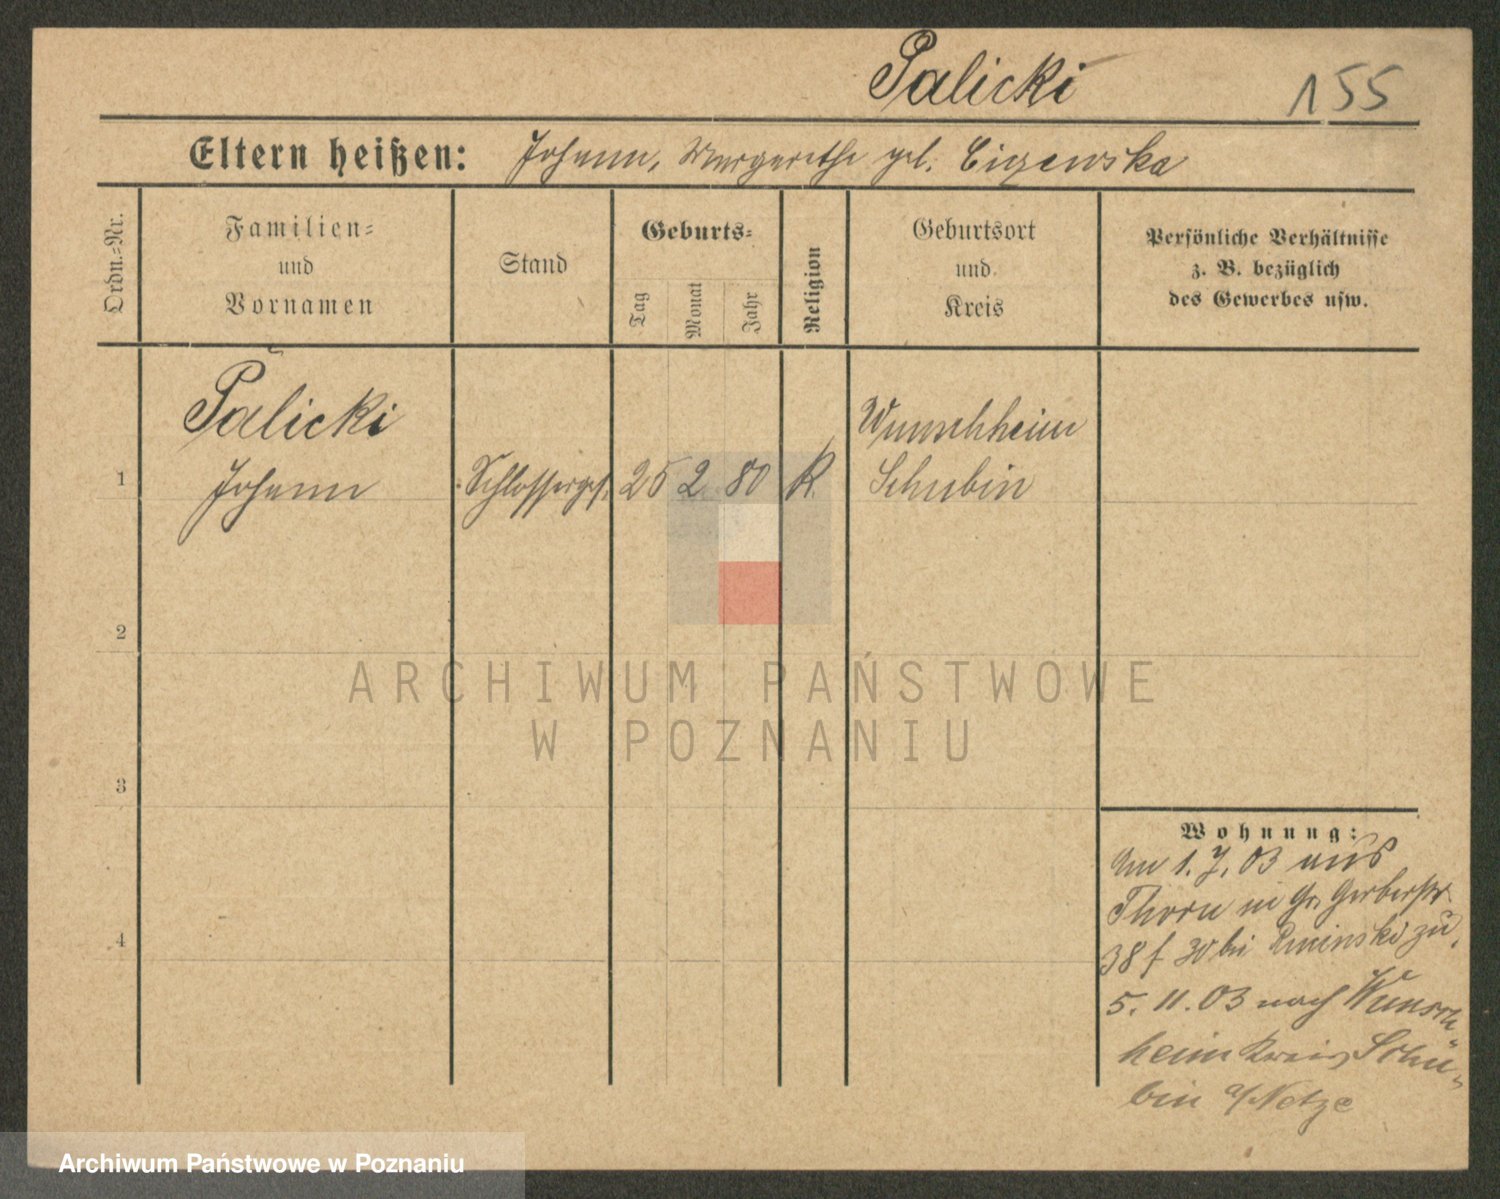 Palicki
155
Eltern heißen: Johann, Margarethe gb. Cizewska
Ordn.-Nr.
Familien-
und
Vornamen
Stand
Geburts-
Tag
Monat
Jahr
Religion
Geburtsort
und
Kreis
Persönliche Verhältnisse
z. B. bezüglich
des Gewerbes usw.
Palicki
1 Johann Schlosserges. 25 2 80 K.
Wunschheim
Schubin
2
3
4
Wohnung:
Am 1. 7. 03 aus
Thorn in Gr. Gerberstr.
38 f bei zu.
5. 11. 03 nach Wunsch
heim Kreis Schu-
bin a/Netze
ARCHIWUM PAŃSTWOWE
W POZNANIU
Archiwum Państwowe w Poznaniu